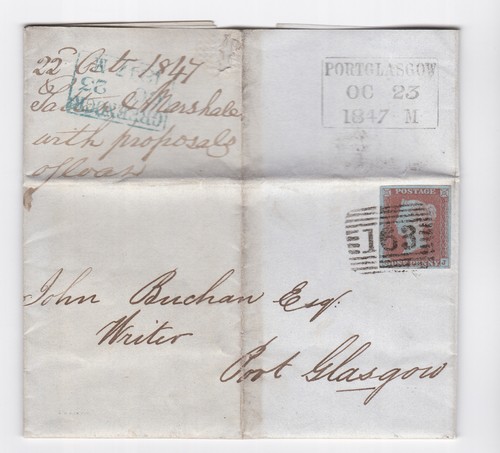 22d Octr 1847
&
Marshall
with proposals
of loan
GREENOCK
23
PORTGLASGOW
OC 23
1847 M
POSTAGE
163
ONE PENNY
John Buchan Esqr
Writer
Port Glasgow